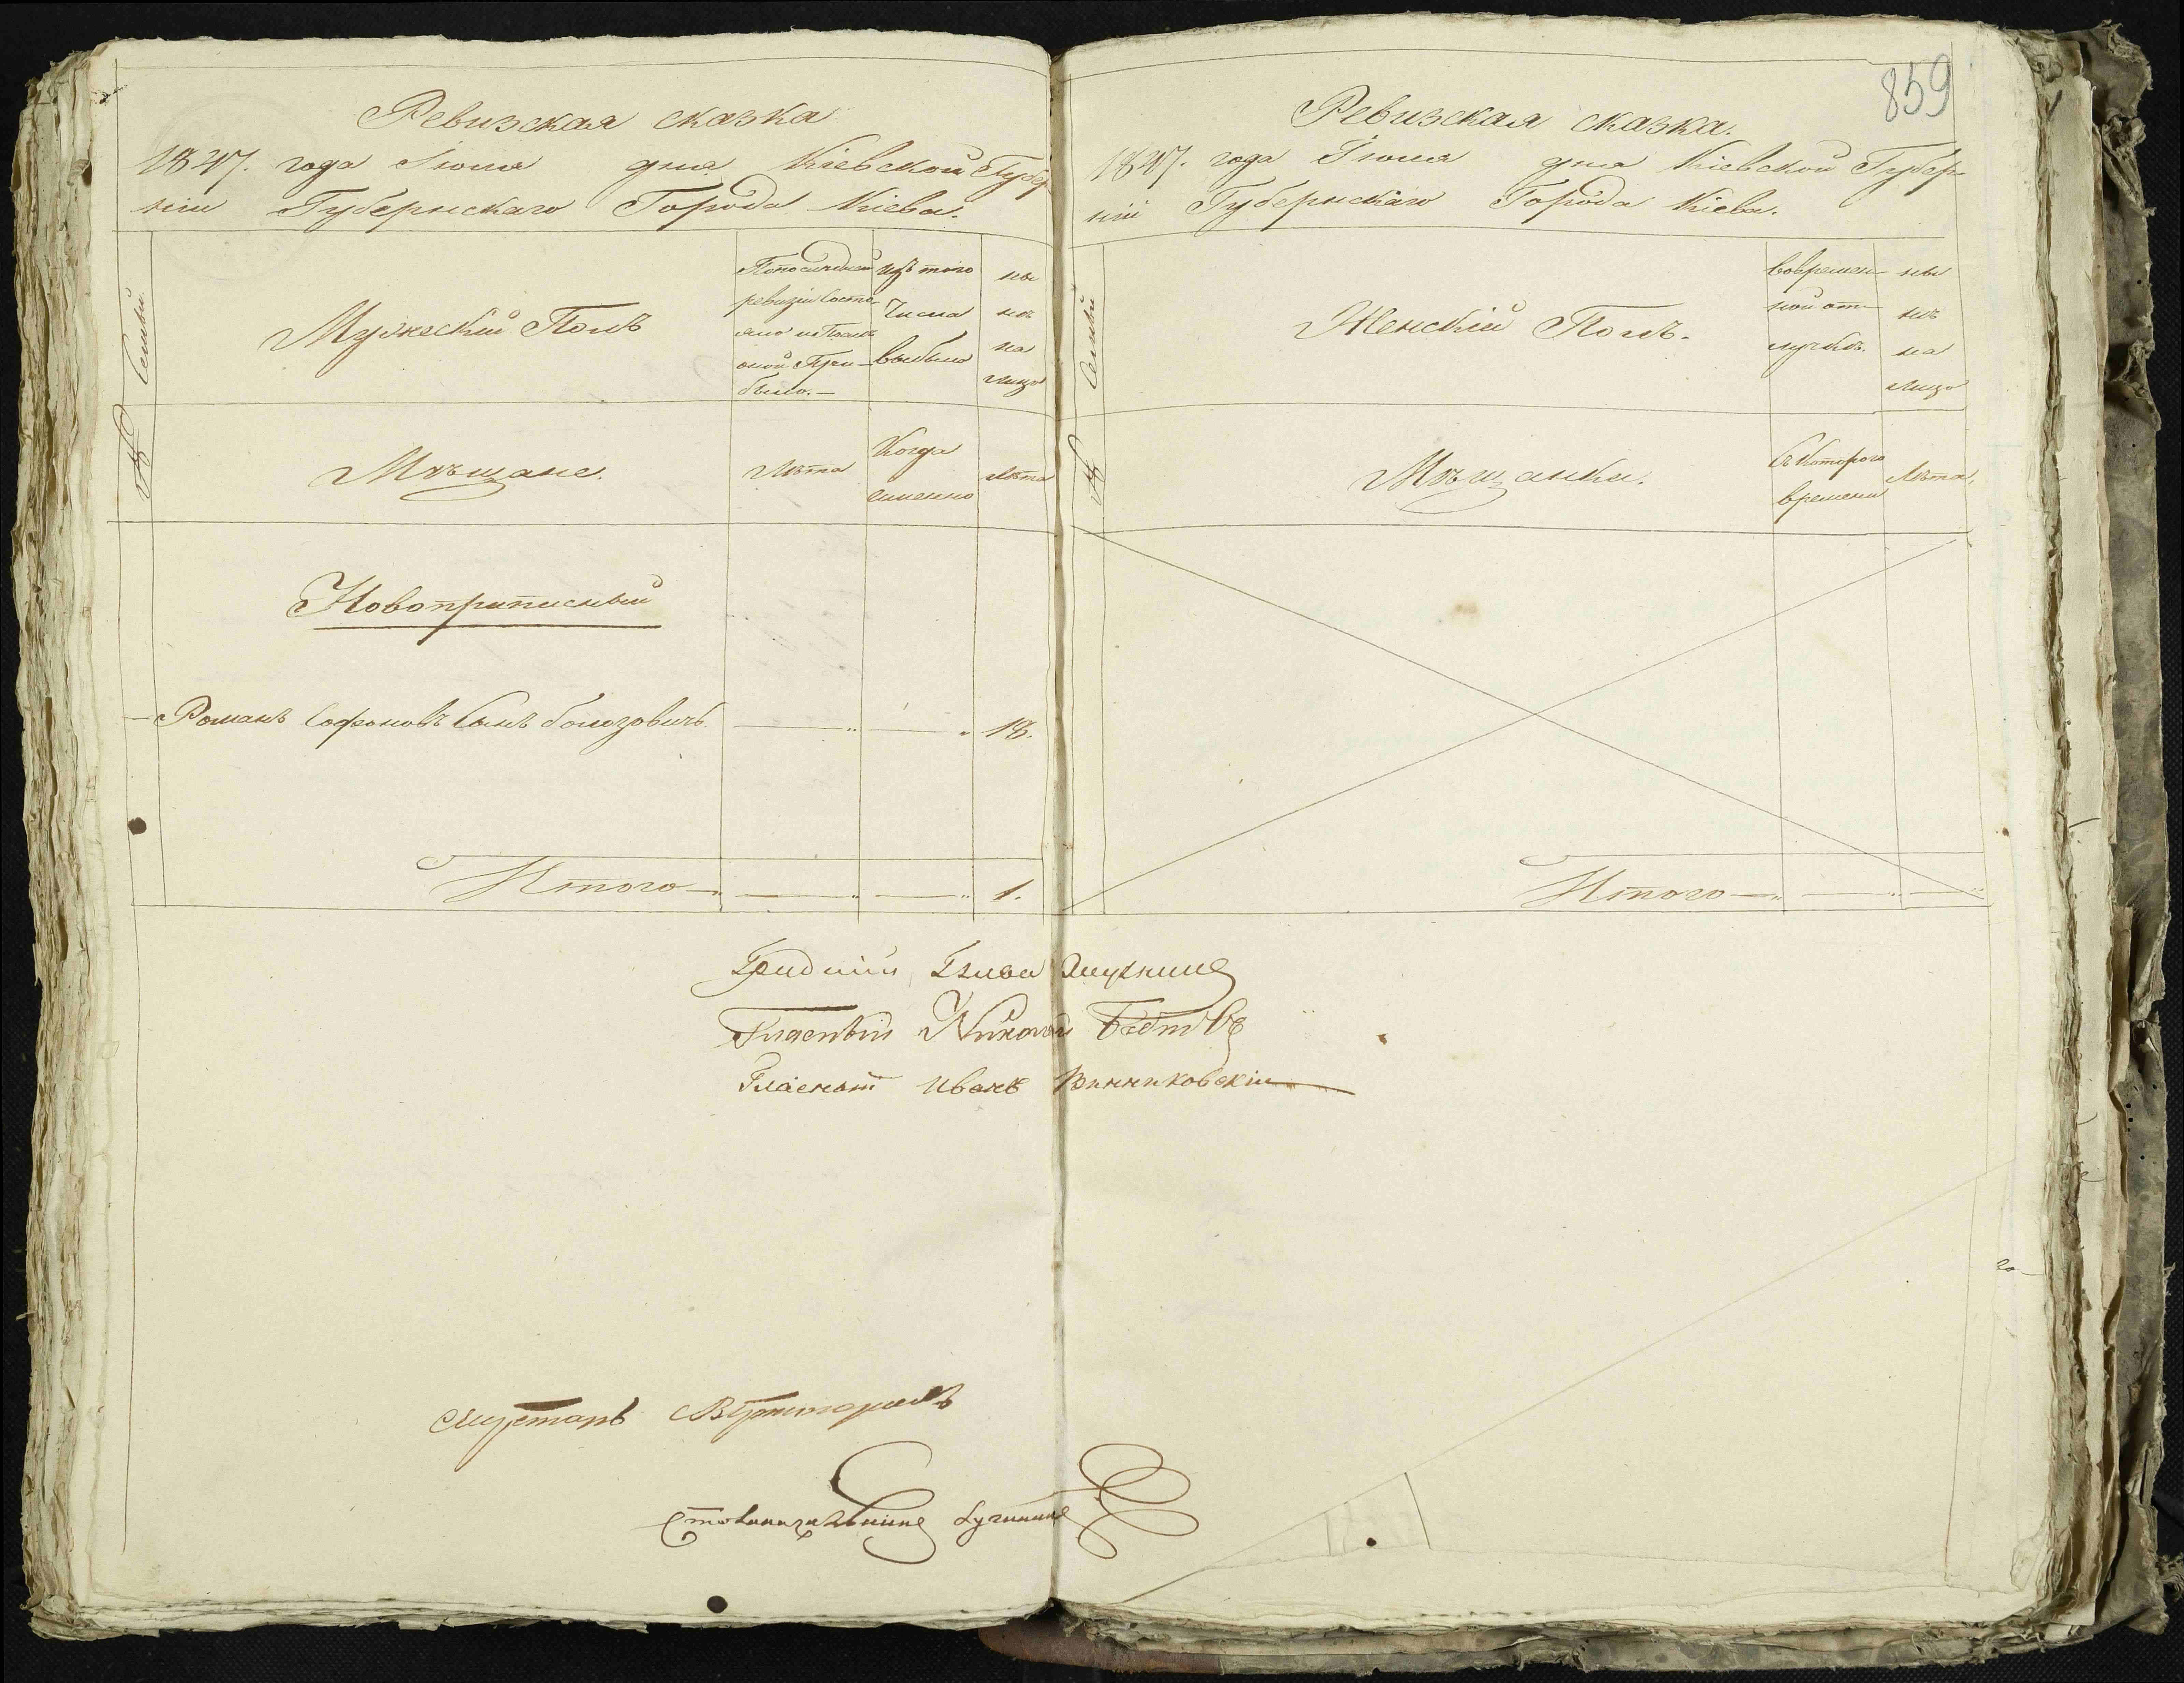 859
Ревизская сказка
1847. года Іюня дня Кіевской Губер
ніи Губернскаго Города Кіева.
№ Семьи
Мужескій Полъ
По последней
ревизіи состо-
яло и после
оной при-
было.
Изъ того
числа
выбыло
ны
нѣ
на
лицо
Мѣщане.
Лѣта
Когда
именно
Лѣта
Новоприписный
Романъ Софоновъ Сынъ
18.
Итого
1.
Ревизская сказка.
1847. года Іюня дня Кіевской Губер-
ніи Губернскаго Города Кіева.
№ Семьи
Женскій Полъ.
Во времен-
ной от-
лучкѣ.
ны
нѣ
на
лицо
Мѣщанки.
Съ котораго
времени
Лѣта.
Итого
Гласный Николай
Гласный Иванъ Винниковскій
Столоначальникъ